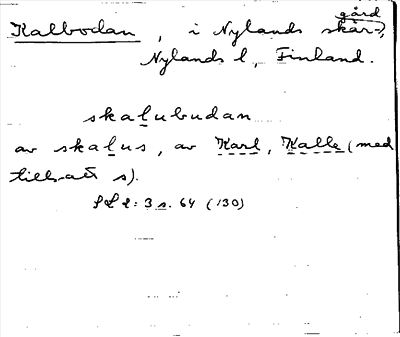 Kalbodan, i Nylands skär-,
gård
Nylands l, Finland.
skalubudan
av skalus, av Karl, Kalle (med
tillsatt s).
SLL: 3 s. 64 (130)